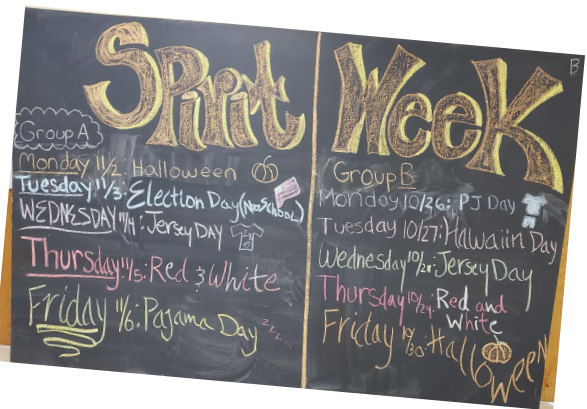 Spirit Week
B
Group A
Monday 11/2: Halloween
Tuesday 11/3: Election Day (No School)
WEDNESDAY 11/4: Jersey Day
Thursday 11/5: Red & White
Friday 11/6: Pajama Day
zzz...
Group B
Monday 10/26: PJ Day
Tuesday 10/27: Hawaiin Day
Wednesday 10/28: Jersey Day
Thursday 10/29: Red and
White
Friday 10/30: Halloween